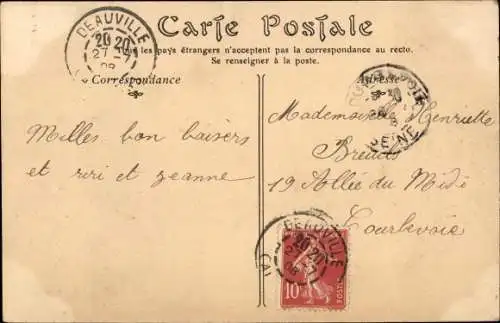 Carte Postale
les pays étrangers n'acceptent pas la correspondance au recto.
Se renseigner à la poste.
Correspondance
Adresse
DEAUVILLE
20 20
27 -7
08
Milles bon baisers
et riri et Jeanne
Mademoiselle Henriette
19 Allée du Midi
Courbevoie
SEINE
DEAUVILLE
20 20
10
POSTES